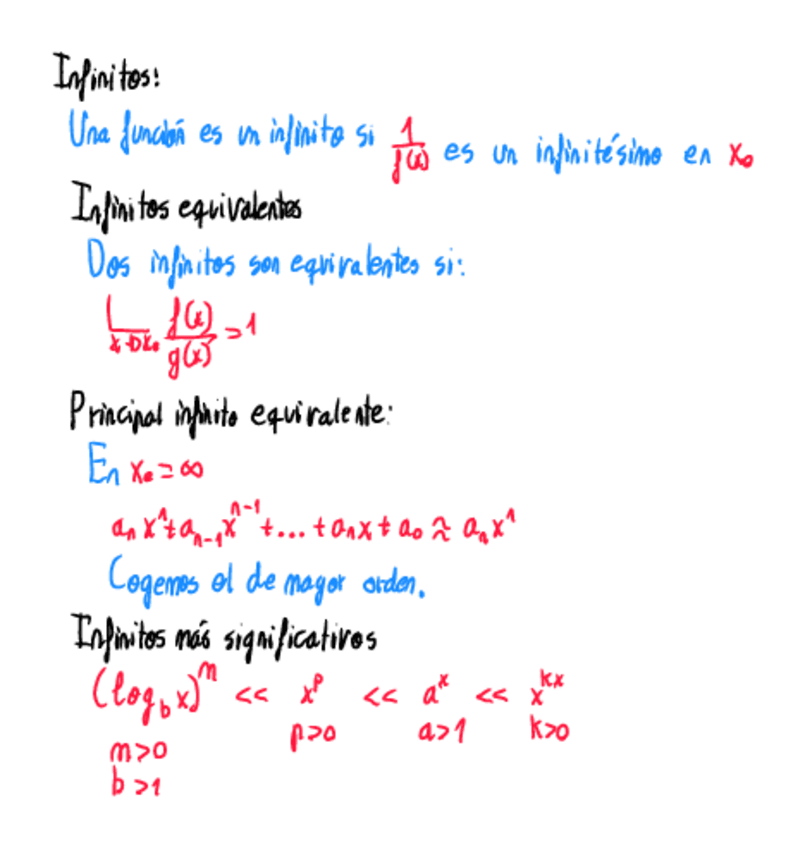 Infinitos:
Una función es un infinito si 1/f(x) es un infinitésimo en x₀
Infinitos equivalentes
Dos infinitos son equivalentes si:
L x→x₀ f(x)/g(x) = 1
Principal infinito equivalente:
En x₀ = ∞
aₙxⁿ + aₙ₋₁xⁿ⁻¹ + ... + a₁x + a₀ ≈ aₙxⁿ
Cogemos el de mayor orden.
Infinitos más significativos
(log_b x)^m << x^p << a^x << x^kx
m>0 p>0 a>1 k>0
b>1